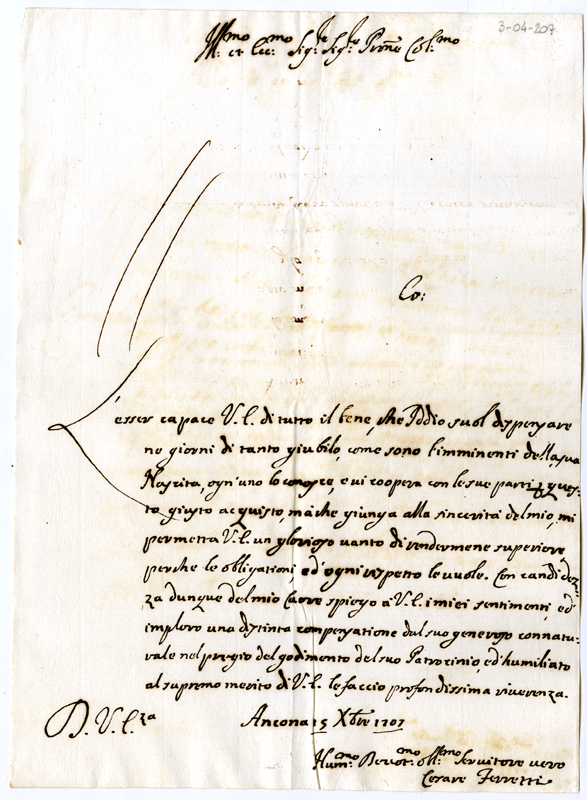 3-04-207
Ill:mo et Ecc:mo Sig:re Sig:re Pron̄e Col:mo
Co:
L'esser capace V.E. di tutto il bene, che Iddio suol dispensare
ne giorni di tanto giubilo, come sono l'imminenti della sua
Nascita, ogn'uno lo conosce, e vi coopera con le sue parti à ques-
to giusto acquisto, mà che giunga alla sincerità del mio, mi
permetta V.E. un glorioso vanto di rendermene superiore,
perche le obligationi, ed'ogni rispetto le vuole. Con candidez-
za dunque del mio Cuore spiego à V.E. i miei sentimenti, ed'
imploro una distinta compensatione dal suo generoso connatu-
rale nel pregio del godimento del suo Patrocinio, ed'humiliato
al supremo merito di V.E. le faccio profondissima riverenza.
D. V. E.za
Ancona 15 Xbre 1707
Hum:mo Devot:mo obl:mo Servitore vero
Cesare Ferretti